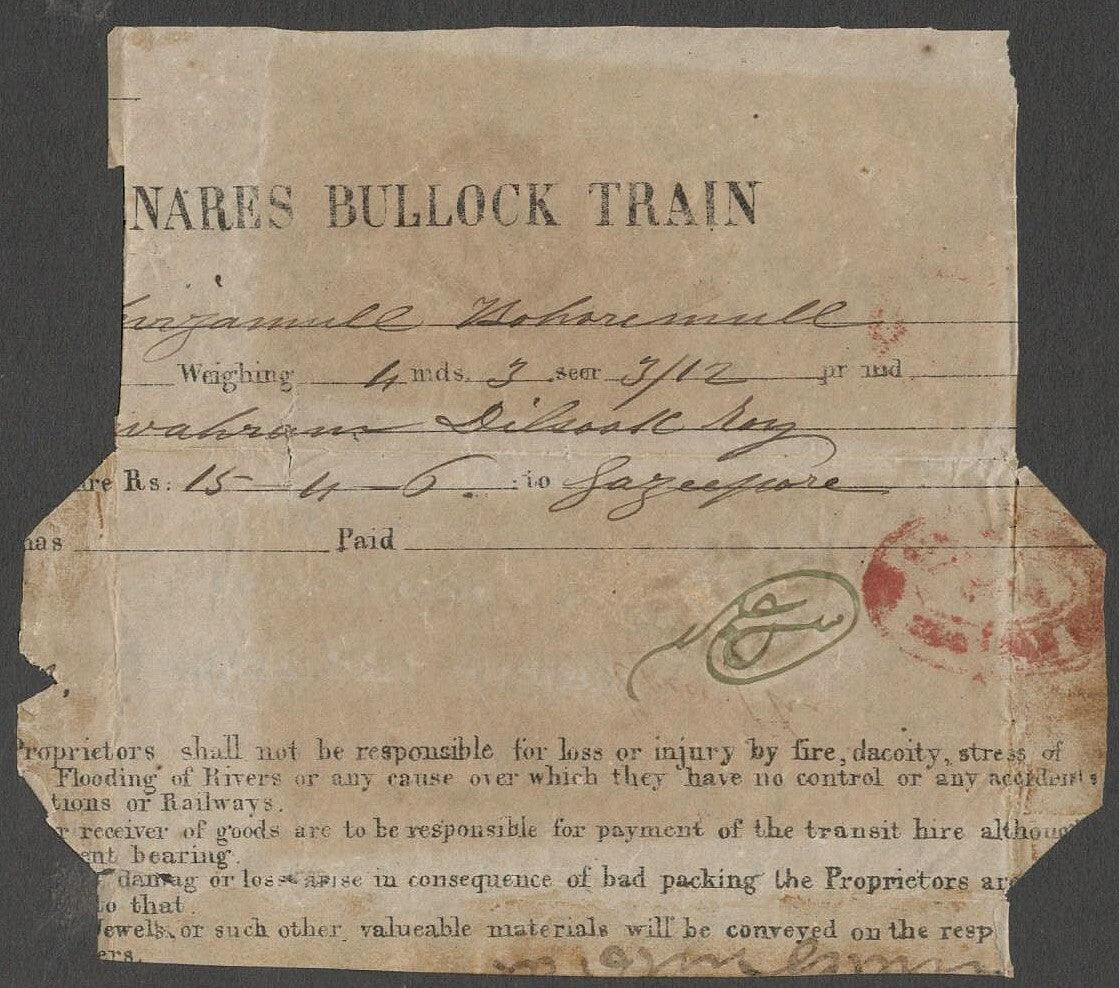 NARES BULLOCK TRAIN
Bohoremull
Weighing 4 mds. 3 seer 3/12 pr md
Dilsook Roy
re Rs: 15 - 4 - 6. to Gazeepore
as Paid
Proprietors shall not be responsible for loss or injury by fire, dacoity, stress of
Flooding of Rivers or any cause over which they have no control or any accidents
tions or Railways.
r receiver of goods are to be responsible for payment of the transit hire althoug
ent bearing.
damag or loss arise in consequence of bad packing the Proprietors ar
to that
Jewels or such other valueable materials will be conveyed on the resp
ers.